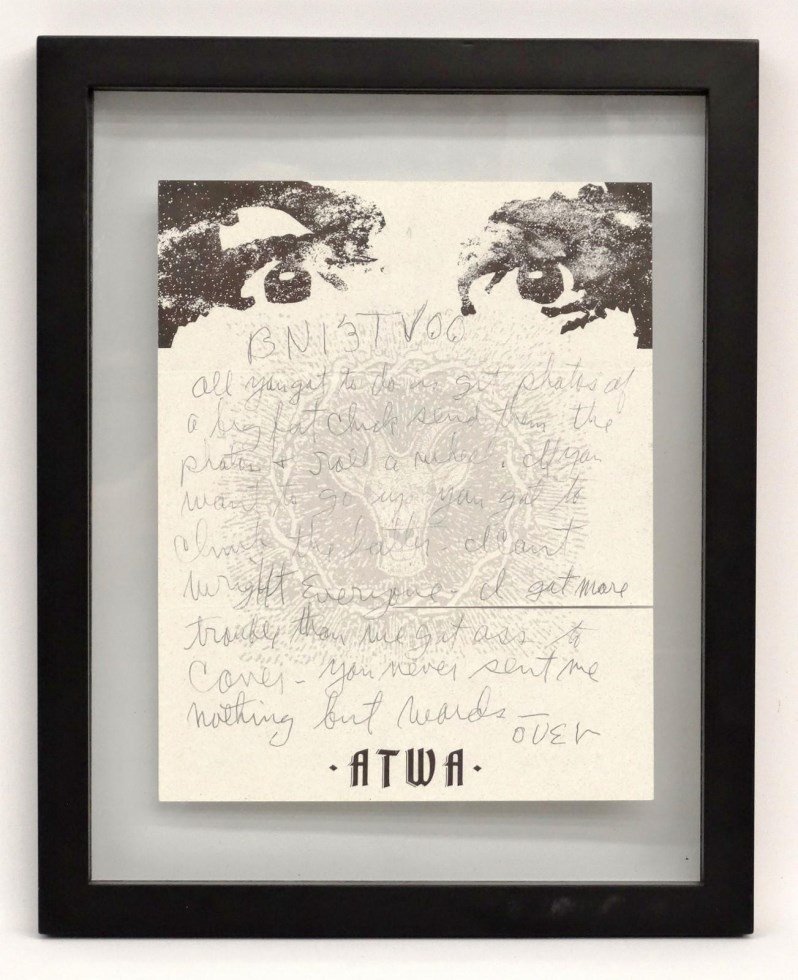 BNIETVOO
all you got to do is get photos of
a big fat chick send them the
photos + role a nickel. If you
want to go up you got to
climb the ladder - I cant
wright everyone - I got more
trouble than Ive got ass to
cover - you never sent me
nothing but words -
OVER
· ATWA ·